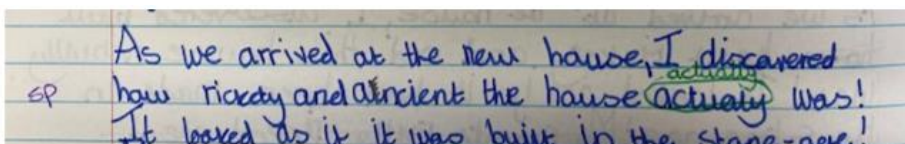 As we arrived at the new house, I discovered
actually
sp how rickety and aincient the house actualy was!
It looked as if it was built in the stone-age!